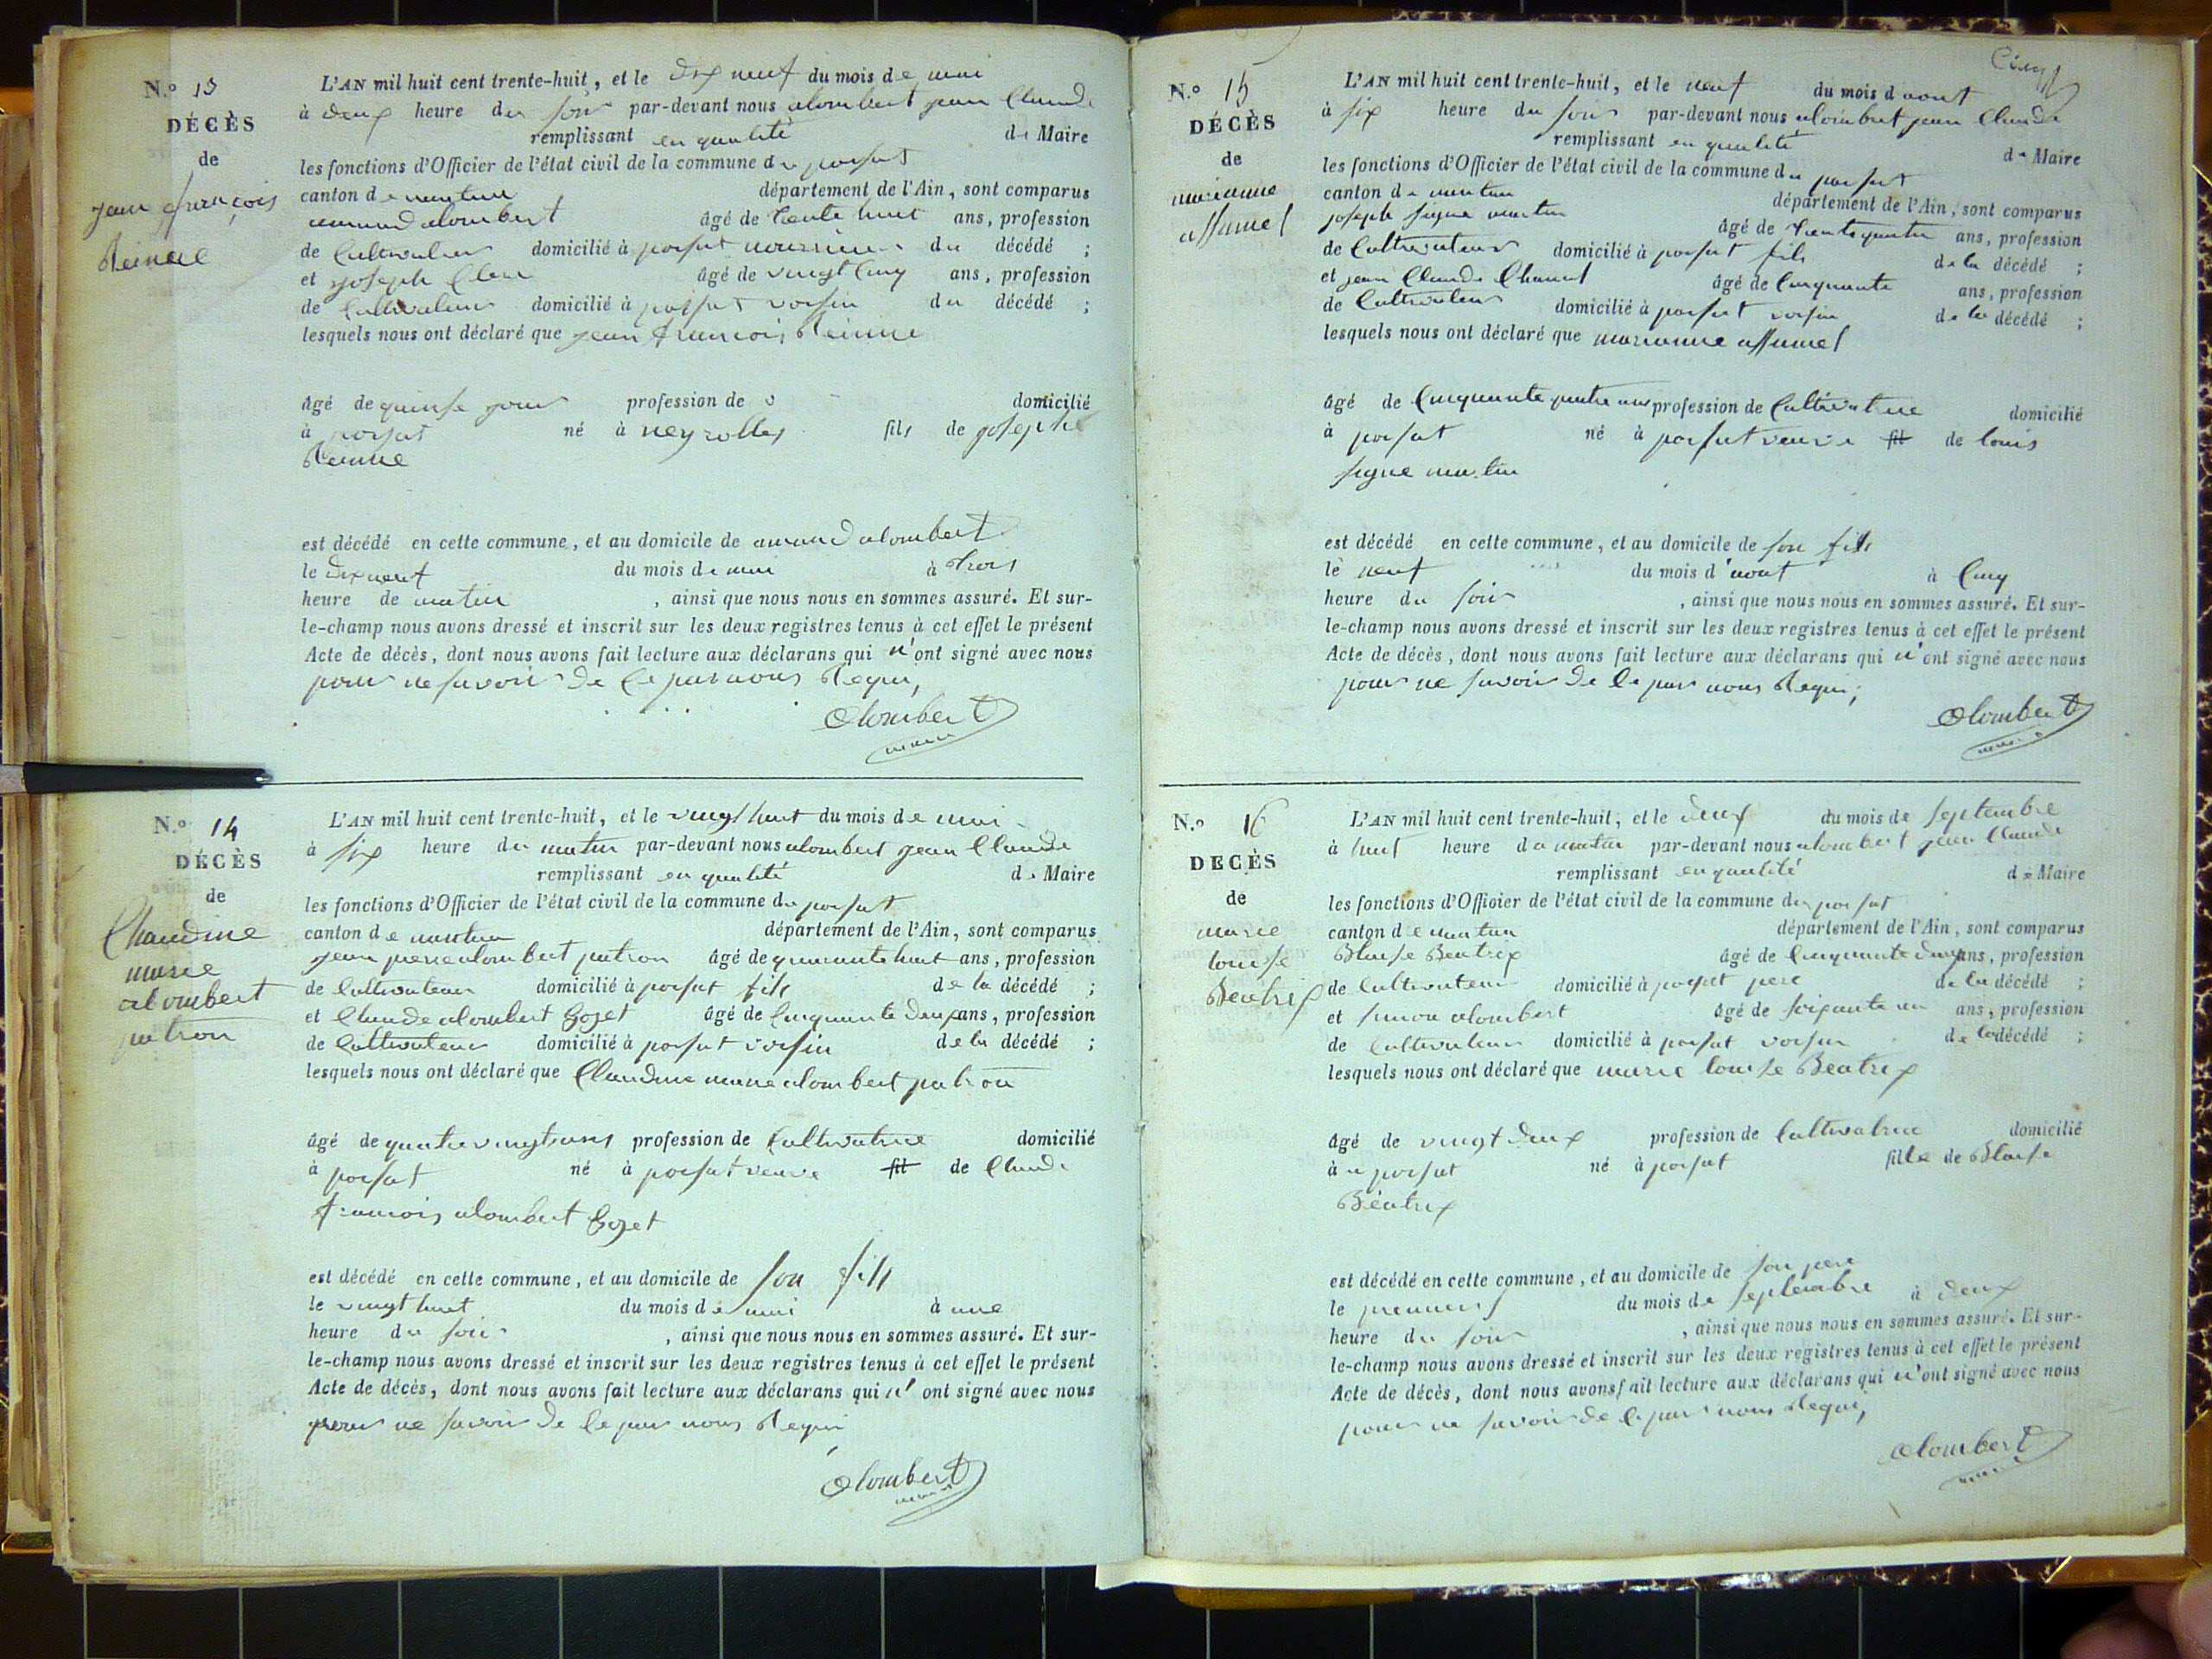 N.o 13
DÉCÈS
de
jean françois
Reinue
L'AN mil huit cent trente-huit, et le dix neuf du mois de mai
à deux heure du soir par-devant nous alombert jean Claude
remplissant en qualité de Maire
les fonctions d'Officier de l'état civil de la commune du porsat
canton de nantua département de l'Ain, sont comparus
armand alombert âgé de trente huit ans, profession
de Cultivateur domicilié à porsat du décédé ;
et joseph âgé de vingt Cinq ans, profession
de Cultivateur domicilié à porsat voisin du décédé ;
lesquels nous ont déclaré que jean françois Reinue
âgé de quinse jours profession de domicilié
à porsat né à neyrolles fils de joseph
Reinue
est décédé en cette commune, et au domicile de armand alombert
le dix neuf du mois de mai à trois
heure de matin , ainsi que nous nous en sommes assuré. Et sur-
le-champ nous avons dressé et inscrit sur les deux registres tenus à cet effet le présent
Acte de décès, dont nous avons fait lecture aux déclarans qui n'ont signé avec nous
pour ne savoir de ce par nous Requi,
alombert
maire
N.o 14
DÉCÈS
de
Claudine
marie
alombert
patron
L'AN mil huit cent trente-huit, et le vingt huit du mois de mai
à six heure du matin par-devant nous alombert jean Claude
remplissant en qualité de Maire
les fonctions d'Officier de l'état civil de la commune du porsat
canton de nantua département de l'Ain, sont comparus
jean pierre alombert patron âgé de quarante huit ans, profession
de Cultivateur domicilié à porsat fils de la décédé ;
et Claude alombert Gozet âgé de Cinquante deux ans, profession
de Cultivateur domicilié à porsat voisin de la décédé ;
lesquels nous ont déclaré que Claudine marie alombert patron
âgé de quatre vingt ans profession de Cultivatrice domicilié
à porsat né à porsat veuve fil de Claude
francois alombert Gozet
est décédé en cette commune, et au domicile de son fils
le vingt huit du mois de mai à une
heure du soir , ainsi que nous nous en sommes assuré. Et sur-
le-champ nous avons dressé et inscrit sur les deux registres tenus à cet effet le présent
Acte de décès, dont nous avons fait lecture aux déclarans qui n'ont signé avec nous
pour ne savoir de ce par nous Requi
alombert
maire
Cinq
N.o 15
DÉCÈS
de
marianne
assumel
L'AN mil huit cent trente-huit, et le neuf du mois d'aout
à six heure du soir par-devant nous alombert jean Claude
remplissant en qualité de Maire
les fonctions d'Officier de l'état civil de la commune du porsat
canton de nantua département de l'Ain, sont comparus
joseph signe martin âgé de trente quatre ans, profession
de Cultivateur domicilié à porsat fils de la décédé ;
et jean Claude Chanel âgé de Cinquante ans, profession
de Cultivateur domicilié à porsat voisin de la décédé ;
lesquels nous ont déclaré que marianne assumel
âgé de Cinquante quatre ans profession de Cultivatrice domicilié
à porsat né à porsat veuve fil de louis
signe martin
est décédé en cette commune, et au domicile de son fils
le neuf du mois d'aout à Cinq
heure du soir , ainsi que nous nous en sommes assuré. Et sur-
le-champ nous avons dressé et inscrit sur les deux registres tenus à cet effet le présent
Acte de décès, dont nous avons fait lecture aux déclarans qui n'ont signé avec nous
pour ne savoir de ce par nous Requi,
alombert
maire
N.o 16
DECÈS
de
marie
louise
Béatrix
L'AN mil huit cent trente-huit, et le deux du mois de septembre
à huit heure du matin par-devant nous alombert jean Claude
remplissant en qualité de Maire
les fonctions d'Officier de l'état civil de la commune du porsat
canton de nantua département de l'Ain, sont comparus
Blaise Béatrix âgé de Cinquante deux ans, profession
de Cultivateur domicilié à porsat pere de la décédé ;
et simon alombert âgé de soixante un ans, profession
de Cultivateur domicilié à porsat voisin de la décédé ;
lesquels nous ont déclaré que marie louise Béatrix
âgé de vingt deux profession de Cultivatrice domicilié
à porsat né à porsat fille de Blaise
Béatrix
est décédé en cette commune, et au domicile de son pere
le premier du mois de septembre à deux
heure du soir , ainsi que nous nous en sommes assuré. Et sur-
le-champ nous avons dressé et inscrit sur les deux registres tenus à cet effet le présent
Acte de décès, dont nous avons fait lecture aux déclarans qui n'ont signé avec nous
pour ne savoir de ce par nous Requi,
alombert
maire